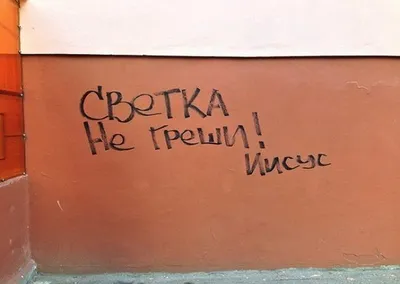 СВеТКА
Не ГРеШИ!
Иисус